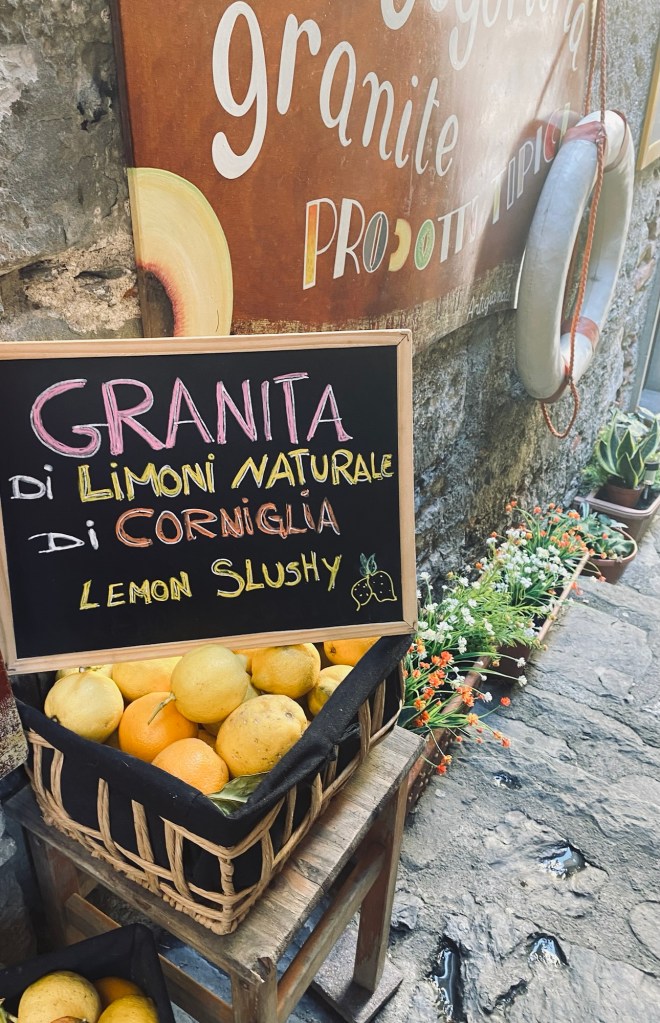 granite
PRODOTTI TIPICI
GRANITA
Di LiMONi NATURALE
Di CORNiGLiA
LEMON SLUSHY